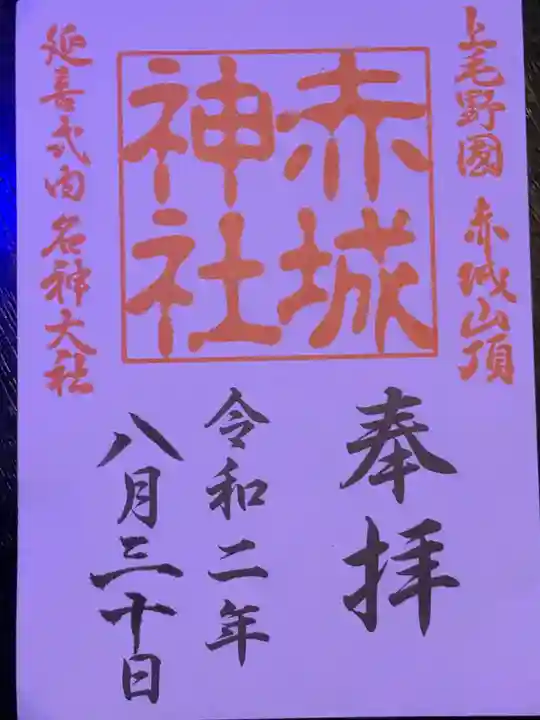 上毛野國 赤城山頂
赤城
神社
延喜式内名神大社
奉拝
令和二年
八月三十日